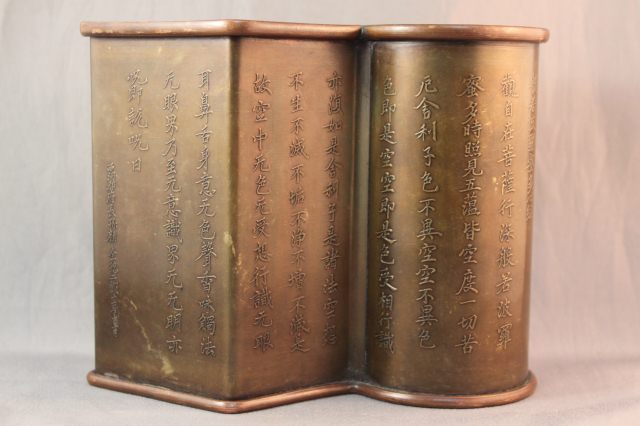 觀自在菩薩行深般若波羅
蜜多時照見五蘊皆空度一切苦
厄舍利子色不異空空不異色
色即是空空即是色受相行識
亦復如是舍利子是諸法空相
不生不滅不垢不淨不增不減是
故空中无色无受想行識无眼
耳鼻舌身意无色聲香味觸法
无眼界乃至无意識界无无明亦
呪即說呪曰